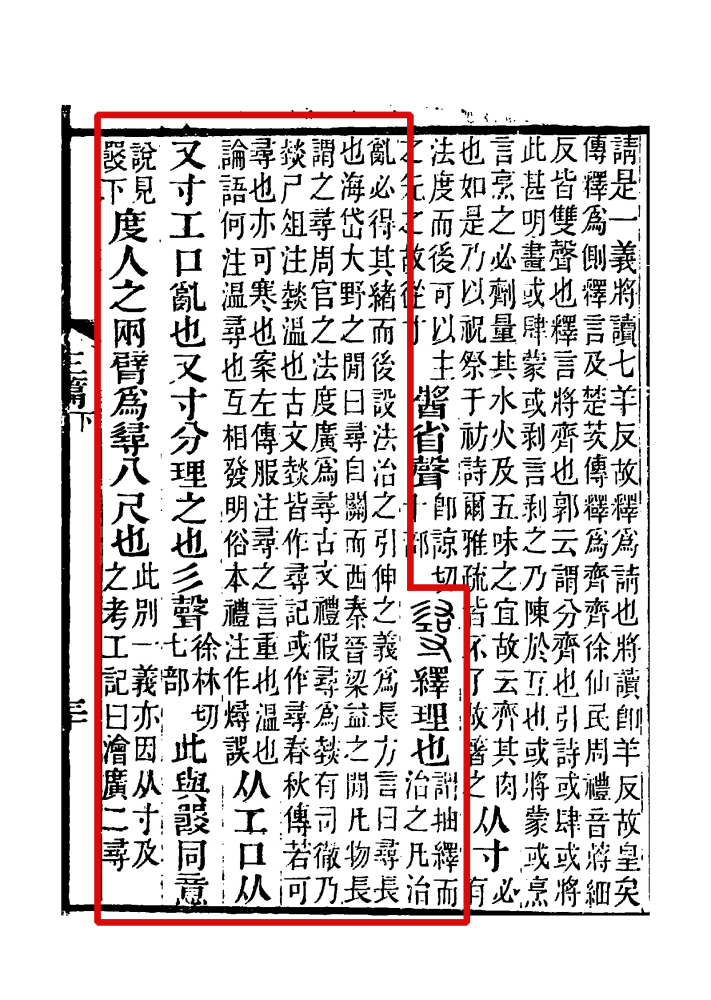 請是一義將讀七羊反故釋爲請也將讀卽羊反故皇矣
傳釋爲側釋言及楚茨傳釋爲齊齊徐仙民周禮音蔣細
反皆雙聲也釋言將齊也郭云謂分齊也引詩或肆或將
此甚明畫或肆蒙或剥言剥之乃陳於互也或將蒙或烹
言烹之必劑量其水火及五味之宜故云齊其肉
也如是乃以祝祭于祊詩爾雅疏皆不了故箸之
从寸
必有
法度而後可以主
之先之故從寸
醬省聲
卽諒切
十部
繹理也
謂抽繹而
治之凡治
亂必得其緒而後設法治之引伸之義爲長方言曰尋長
也海岱大野之閒曰尋自關而西秦晉梁益之閒凡物長
謂之尋周官之法度廣爲尋古文禮假尋爲燅有司徹乃
燅尸俎注燅溫也古文燅皆作尋記或作尋春秋傳若可
尋也亦可寒也案左傳服注尋之言重也溫也
論語何注溫尋也互相發明俗本禮注作燖誤
从工口从
又寸工口亂也又寸分理之也彡聲
徐林切
七部
此與𤕦同意
說見
𤕦下
度人之兩臂爲尋八尺也
此別一義亦因从寸及
之考工記曰澮廣二尋
三篇下